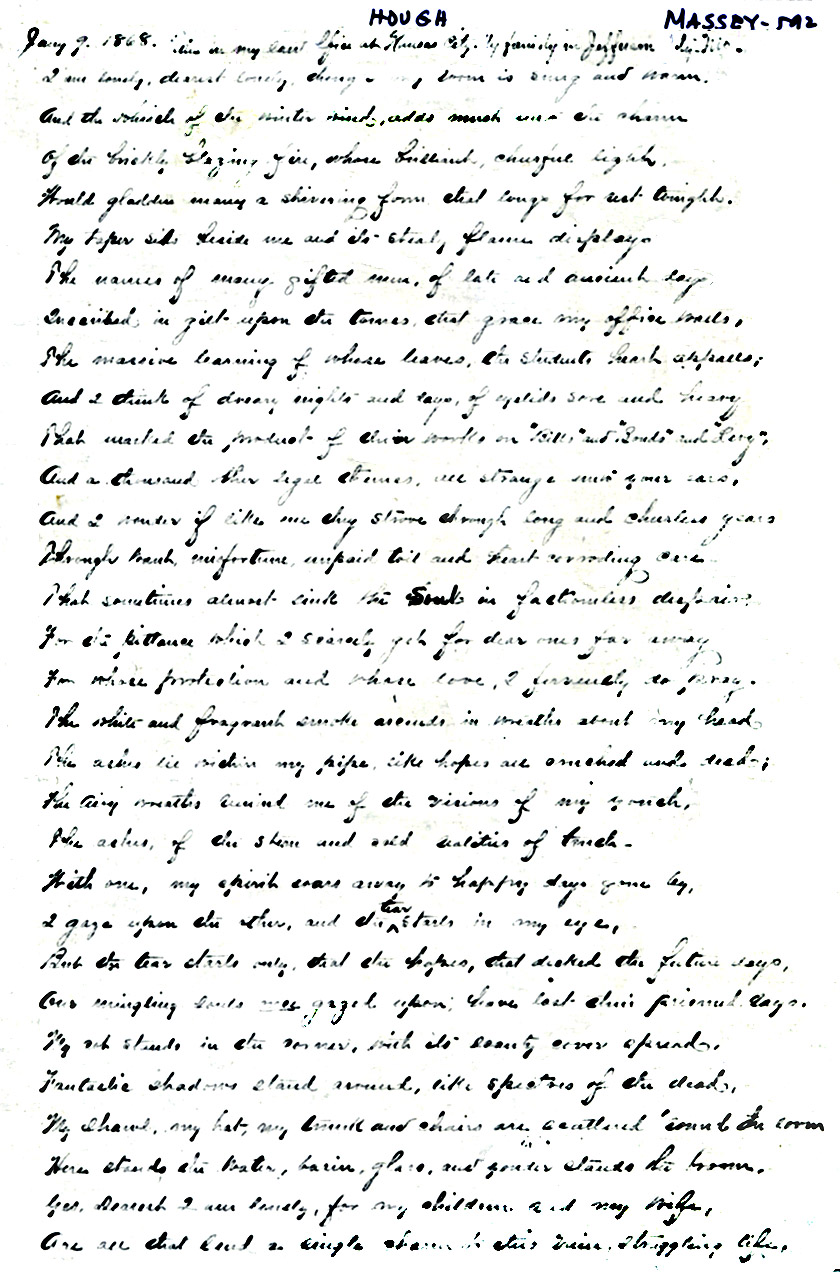 HOUGH MASSEY-592
Jany 9. 1868. This in my law office at Kansas City. My family in Jefferson City Mo.
I am lonely, dearest lonely, though my room is snug and warm,
And the which of the winter wind, adds much unto the charm
Of the brickly blazing fire, whose brilliant, cheerful light,
Would gladden many a shivering form, that longs for rest tonight.
My taper sits beside me and its steady flame displays
The names of many gifted men, of late and ancient days
Inscribed in gilt upon the tomes, that grace my office walls,
The massive learning of whose leaves, the students heart appalls;
And I think of dreary nights and days, of eyelids sore and heavy
That marked the product of their works on "Bills" and "Bonds" and "Levy",
And a thousand other legal themes, all strange unto your ears,
And I wonder if like me they strove through long and cheerless years
Through want, misfortune, unpaid toil and heart corroding care
That sometimes almost sink the Soul in fathomless despair;
For the pittance which I scarcely get for dear ones far away
For whose protection and whose love, I fervently do pray.
The white and fragrant smoke ascends in wreaths about my head
The ashes lie within my pipe, like hopes all crushed and dead;
The airy wreaths remind me of the visions of my youth,
The ashes, of the stern and cold realities of truth.
With one, my spirit soars away to happy days gone by,
I gaze upon the other, and the tear starts in my eye,
But the tear starts only, that the hopes, that decked the future days,
Our mingling souls once gazed upon, have lost their rays.
My cot stands in the corner, with its scanty cover spread,
Fantastic shadows stand around, like spectres of the dead,
My shawl, my hat, my trunk and chairs are scattered 'round the room
Here stands the water, basin, glass, and yonder stands the broom.
Yes, Dearest I am lonely, for my children and my wife,
Are all that lend a single charm to this vain, struggling life,